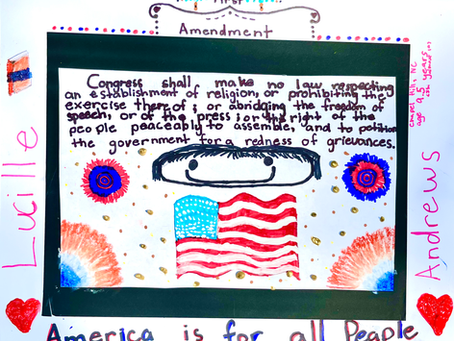 First
Amendment
Congress shall make no law respecting
an establishment of religion, or prohibiting the
exercise there of; or abridging the freedom of
speech, or of the press; or the right of the
people peaceably to assemble, and to potition
the government for a redness of grievances.
Lucille
Andrews
chapel Hill, NC
age 9.5 years
America is for all People